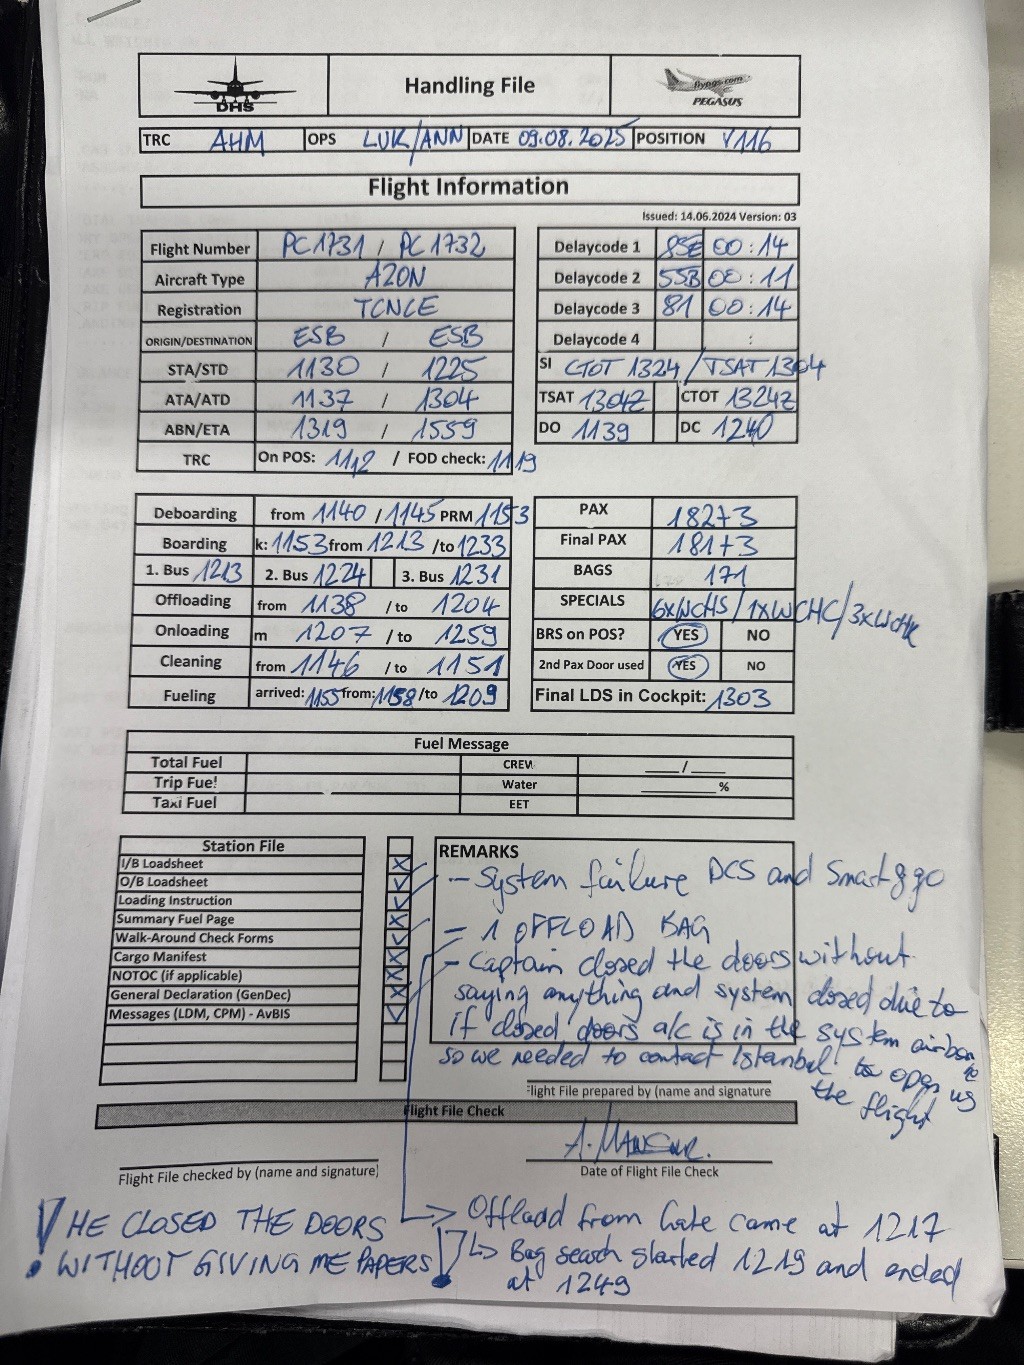 DHS
Handling File
flypgs.com
PEGASUS
TRC AHM OPS LUK/ANN DATE 09.08.2025 POSITION V116
Flight Information
Issued: 14.06.2024 Version: 03
Flight Number PC1731 / PC1732
Aircraft Type A20N
Registration TCNCE
ORIGIN/DESTINATION ESB / ESB
STA/STD 1130 / 1225
ATA/ATD 1137 / 1304
ABN/ETA 1319 / 1559
TRC On POS: 1112 / FOD check: 1119
Delaycode 1 85E 00:14
Delaycode 2 55B 00:11
Delaycode 3 81 00:14
Delaycode 4 :
SI CTOT 1324 / TSAT 1304
TSAT 1304Z CTOT 1324Z
DO 1139 DC 1240
Deboarding from 1140 / 1145 PRM 1153
Boarding k: 1153 from 1213 /to 1233
1. Bus 1213 2. Bus 1224 3. Bus 1231
Offloading from 1138 / to 1204
Onloading m 1207 / to 1259
Cleaning from 1146 / to 1151
Fueling arrived: 1155 from: 1158 /to 1209
PAX 182+3
Final PAX 181+3
BAGS 171
SPECIALS 6xWCHS / 1xWCHC / 3xWCHR
BRS on POS? YES NO
2nd Pax Door used YES NO
Final LDS in Cockpit: 1303
Fuel Message
Total Fuel CREW ___/___
Trip Fue! Water ______%
Taxi Fuel EET
Station File
I/B Loadsheet
O/B Loadsheet
Loading Instruction
Summary Fuel Page
Walk-Around Check Forms
Cargo Manifest
NOTOC (if applicable)
General Declaration (GenDec)
Messages (LDM, CPM) - AvBIS
REMARKS
- System failure DCS and Smart&go
- 1 OFFLOAD BAG
- Captain closed the doors without
saying anything and system closed due to
if closed doors a/c is in the system airborne
so we needed to contact Istanbul to open us
the flight
Flight File prepared by (name and signature
Flight File Check
A. MANSUR.
Flight File checked by (name and signature)
Date of Flight File Check
! HE CLOSED THE DOORS
WITHOUT GIVING ME PAPERS!
→ Offload from Gate came at 1217
↳ Bag search started 1219 and ended
at 1249